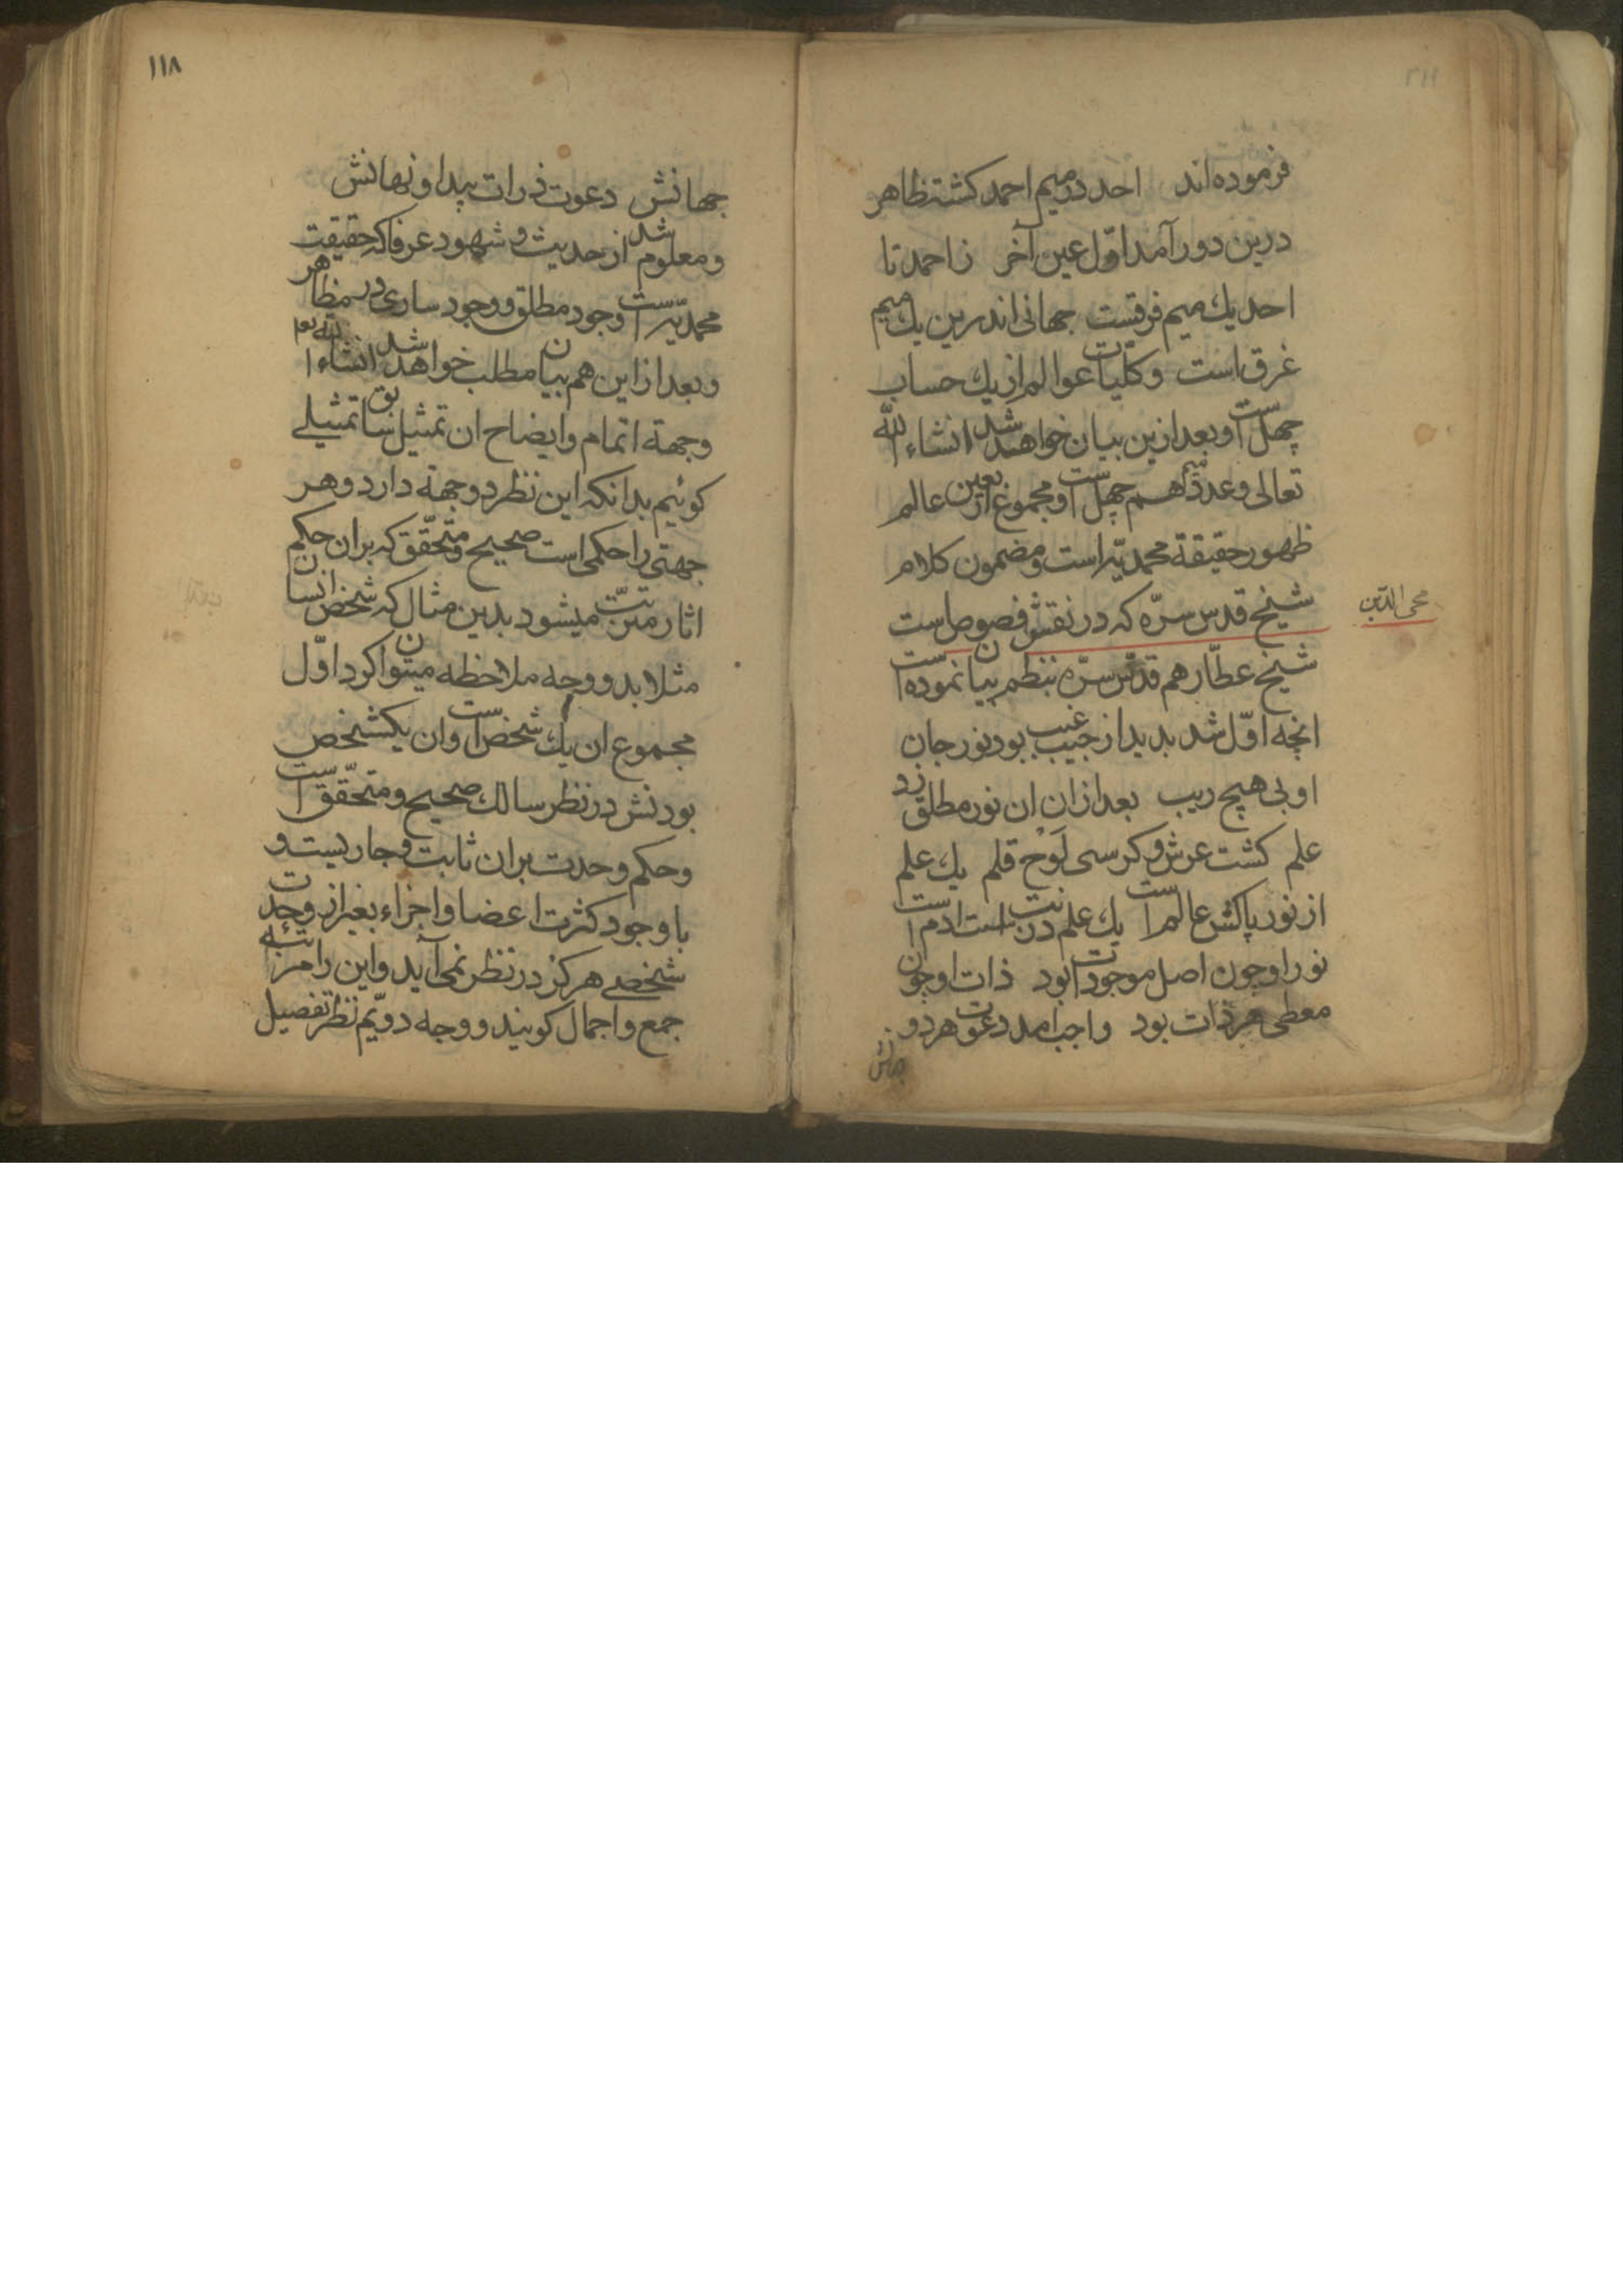 فرموده‌اند احد در میم احمد کشت ظاهر
درین دور آمد اوّل عین آخر ز احمد تا
احد یك میم فرقیست جهانی اندرین یك میم
غرق است و کلّیات عوالم از یك حساب
چهل است و بعد ازین بیان خواهد شد انشاء الله
تعالی و عدد میم هم چهل است و مجموع اربعین عالم
ظهور حقیقة محمدیّه است و مضمون کلام
شیخ قدس سرّه که در نقش فصوص است
محی الدّین
شیخ عطّار هم قدّس سرّه بنظم بیان نموده است
انچه اوّل شد بدید از جیب غیب بود نور جان
او بی هیچ ریب بعد ازان ان نور مطلق زد
علم کشت عرش و کرسی لَوح قلم یك علم
از نور پاکش عالم است یك علم ذریت است ادم است
نور او چون اصل موجودات بود ذات او چون
معطی هر ذات بود واجب امد دعوت هر دو
جهانش
۱۱۸
جهانش دعوت ذرات پیدا و نهانش
و معلوم شد از حدیث و شهود عرفا که حقیقت
محمدیّه است وجود مطلق و وجود ساری در مظاهر
و بعد از این هم بیان مطلب خواهد شد انشاء الله تع
و جهة اتمام و ایضاح ان تمثیل سابق تمثیلے
کوئیم بدانکه این نظر دو جهة دارد و هر
جهتی را حکمی است صحیح و متحّقق که بران حکم
اثار مترتّب میشود بدین مثال که شخص انسان
مثلا بدو وجه ملاحظه میتوان کرد اوّل
مجموع ان یك شخص است و ان یکشخص
بودنش در نظر سالك صحیح و متحّقق است
و حکم وحدت بران ثابت و جاریست و
با وجود کثرت اعضا و اجزاء بغیر از وحدت
شخصے هرکز در نظر نمی‌آید و این را مرتبهٔ
جمع و اجمال کویند و وجه دویّم نظر تفصیل